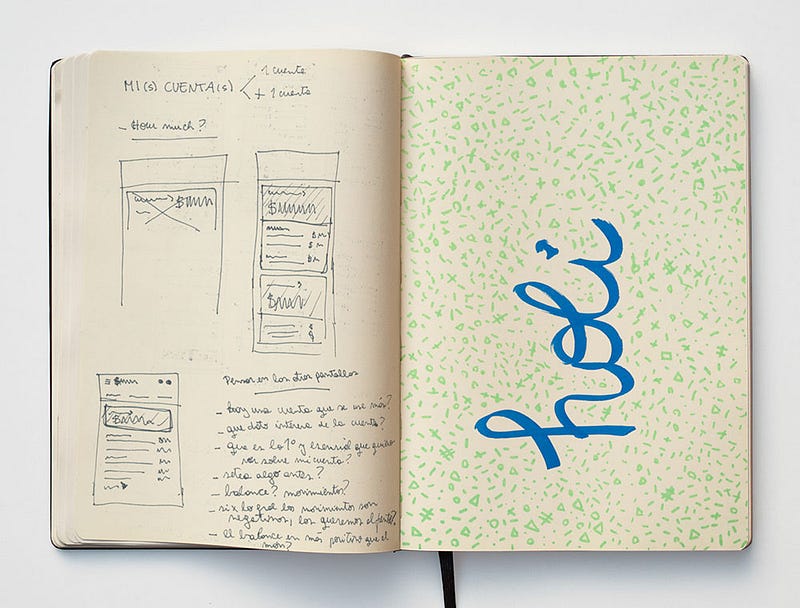 MI(S) CUENTA(S)
1 cuenta
+ 1 cuenta
- How much?
$
$
$
$
$
$
Pensar en las otras pantallas
- hay una cuenta que se use más?
- que dato interesa de la cuenta?
- que es lo 1º y esencial que quiero
ver sobre mi cuenta?
- algo antes?
- balance? movimientos?
- si x lo gral los movimientos son
negativos, los queremos al frente?
- el balance es más positivo que el
holi